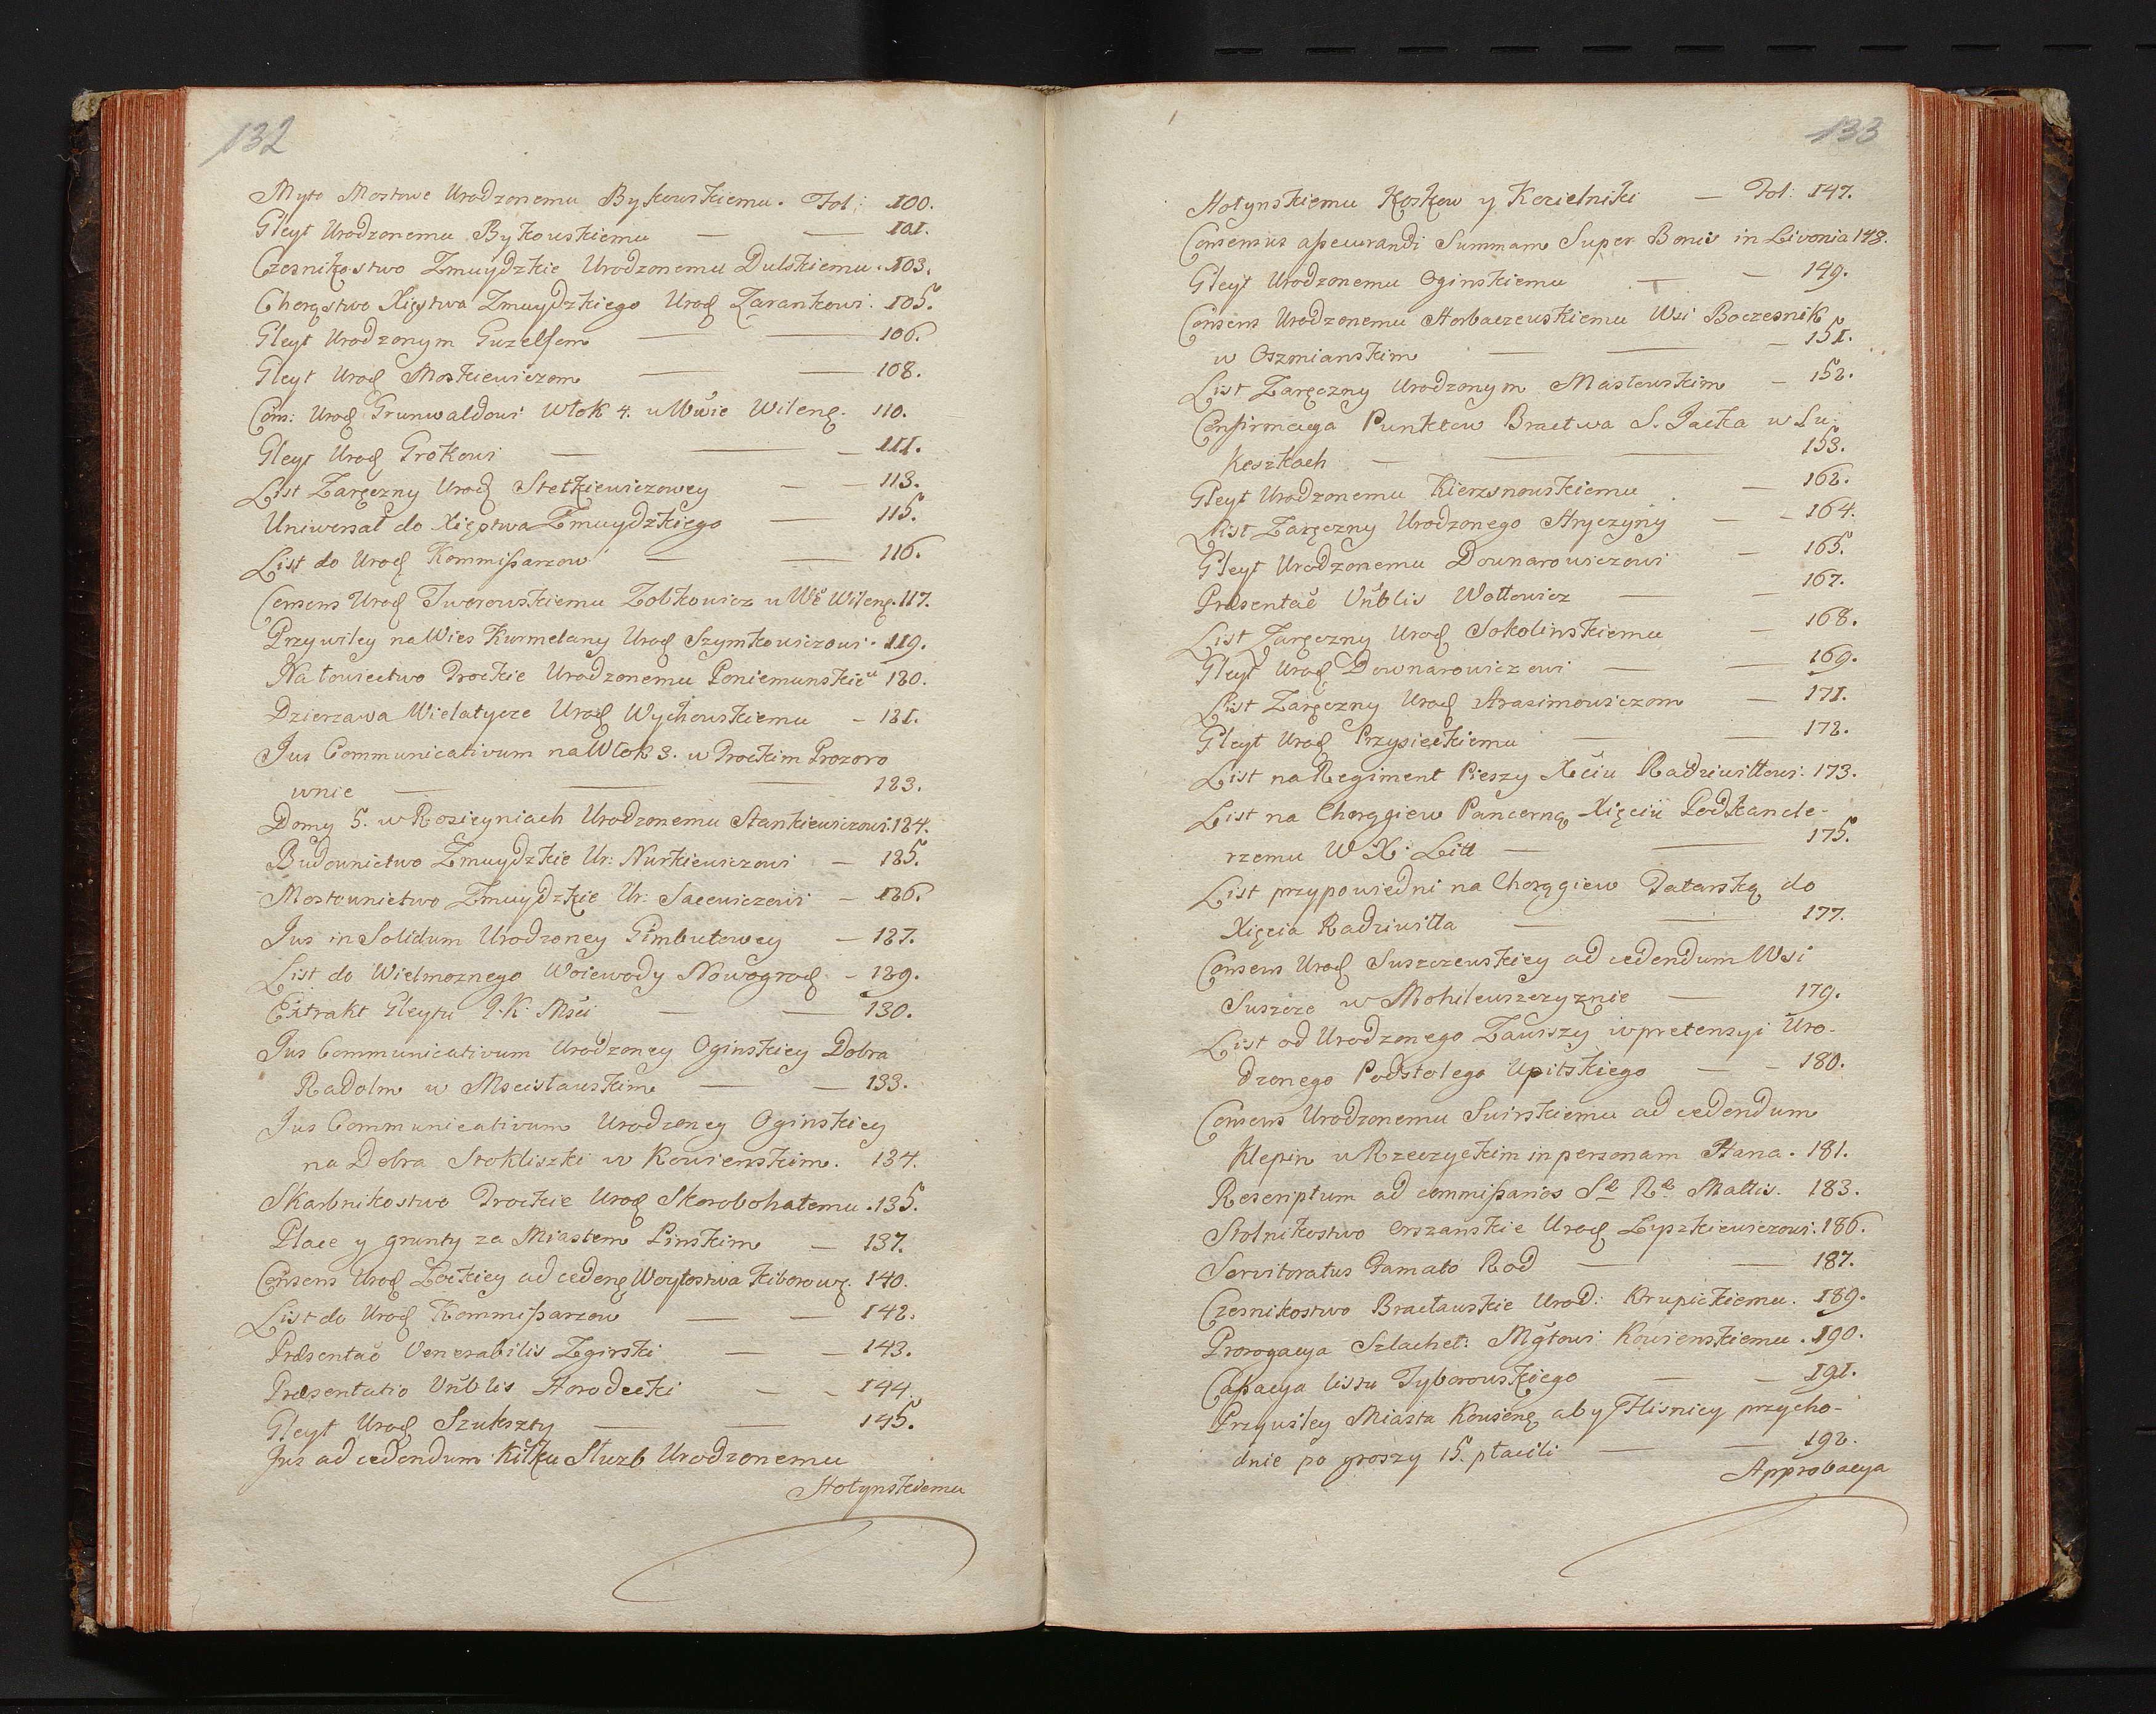 132
Myto Mostwe Urodzonemu Bykowskiemu. Fol: 100.
Gleyt Urodzonemu Bykowskiemu — — 101.
Czesnikostwo Zmuydzkie Urodzonemu Dulskiemu. 103.
Chorąstwo Xięstwa Zmuydzkiego Urod Zarankowi. 105.
Gleyt Urodzonym Guzelfom — — 106.
Gleyt Urod Moskiewiczom — — 108.
Con: Urod Grunwaldowi Włok 4. w Wwie Wileng. 110.
Gleyt Urod Grotkowi — — — 111.
List Zaręczny Urod Stetkiewiczowey — — 113.
Uniwersał do Xięstwa Zmuydzkiego — 115.
List do Urod Kommißarzow — — 116.
Consens Urod Tworowskiemu Zołkowicz w Wě Wileng. 117.
Przywiley na Wies Kurmelany Urod Szymkowiczowi. 119.
Na łowiectwo Trockie Urodzonemu Poniemunskieu 120.
Dzierzawa Wielatycze Urod Wychowskiemu — 121.
Jus Communicativum na Włok 3. w Trockim Prozoro
wnie — — — 123.
Domy 5. w Rosieyniach Urodzonemu Stankiewiczowi. 124.
Budownictwo Zmuydzkie Ur: Nurkiewiczowi — 125.
Mostownictwo Zmuydzkie Ur: Sacewiczowi — 126.
Jus in Solidum Urodzoney Gimbutowey — 127.
List do Wielmoznego Woiewody Nowogrod — 129.
Extrakt Gleytu J. K. Mści — — 130.
Jus Communicativum Urodzoney Oginskiey Dobra
Radolm w Mscisławskim — — 133.
Jus Communicativum Urodzoney Oginskiey
na Dobra Stokliszki w Kowienskim. 134.
Skarbnikostwo Trockie Urod Skorobohatemu. 135.
Place y grunty za Miastem Pinskim — 137.
Consens Urod Łockiey ad cedeng Woytostwa Kiborowg. 140.
List do Urod Kommißarzow — — 142.
Præsentac Venerabilis Zgirski — — 143.
Præsentatio Vnblis Horodecki — — 144.
Gleyt Urod Szukszty — — 145.
Jus ad cedendum kilku Słuzb Urodzonemu
Hołynskiemu
133
Hołynskiemu Korkow y Kozielniki — Fol: 147.
Consensus aßecurandi Summam Super Bonis in Livonia 148.
Gleyt Urodzonemu Oginskiemu — — 149.
Consens Urodzonemu Horbaczewskiemu Wsi Boczesnik
w Oszmianskim — — — 151.
List Zaręczny Urodzonym Masłowskim — 152.
Confirmacya Punktow Bractwa S. Jacka w Łu-
keszkach — — — 153.
Gleyt Urodzonemu Kierznowskiemu — 162.
List Zaręczny Urodzonego Hryczyny — — 164.
Gleyt Urodzonemu Downarowiczowi — 165.
Præsentac Vnblis Wołłowicz — — 167.
List Zaręczny Urod Sokolinskiemu — 168.
Gleyt Urod Downarowiczowi — — 169.
List Zaręczny Urod Harasimowiczom — 171.
Gleyt Urod Przysieckiemu — — 172.
List na Regiment Pieszy Xciu Radziwiłłowi. 173.
List na Chorągiew Pancerną Xięciu Podkancle-
rzemu W X: Litt — — 175.
List przypowiedni na Chorągiew Tatarską do
Xięcia Radziwiłła — — 177.
Consens Urod Suszczewskiey ad cedendum Wsi
Suszcze w Mohilewszczyznie — 179.
List od Urodzonego Zawiszy w pretensyi Uro-
dzonego Podstolego Upitskiego — — 180.
Consens Urodzonemu Swirskiemu ad cedendum
Klepin w Rzeczyckim in personam Hana. 181.
Rescriptum ad commißarios Sæ Ræ Mattis. 183.
Stolnikostwo Orszanskie Urod Łyszkiewiczowi. 186.
Servitoratus Pamato Rod — — 187.
Czesnikostwo Bracławskie Urod: Krupickiemu. 189.
Prorogacya Szlachet: Mgtowi Kowienskiemu. 190.
Caßacya listu Tyborowskiego — — 191.
Przywiley Miasta Kowieng aby Flisnicy przycho-
dnie po groszy 15. płacili — — 192.
Approbacya